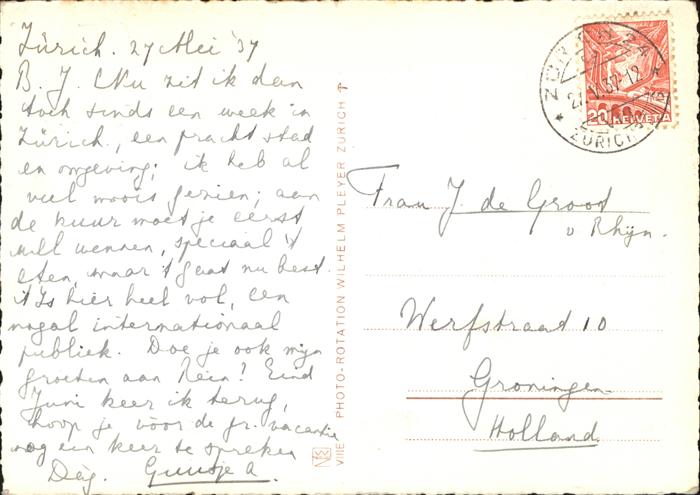 Zürich. 27 Mei '37
B. J. Nu zit ik dan
toch sinds een week in
Zürich, een pracht stad
en omgeving; ik heb al
veel moois gezien; aan
de kuur moet je eerst
wennen, speciaal 't
eten, maar 't gaat nu best.
't Is hier heel vol, een
nogal internationaal
publiek. Doe je ook mijn
groeten aan Rein? Eind
Juni keer ik terug,
hoop je vóor de gr. vacantie
nog een keer te spreken
Dag. Guusje A.
VIIIE PHOTO-ROTATION WILHELM PLEYER ZÜRICH 7
20 HELVETIA
ZÜRICH
27.V.37-12
Frau J. de Groot
v Rhijn.
Werfstraat 10
Groningen
Holland.